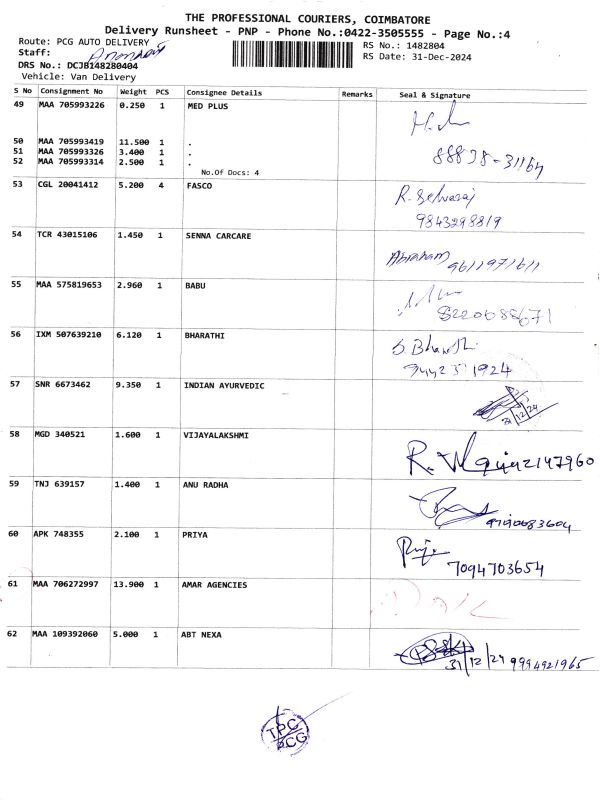 THE PROFESSIONAL COURIERS, COIMBATORE
Delivery Runsheet - PNP - Phone No.:0422-3505555 - Page No.:4
Route: PCG AUTO DELIVERY RS No.: 1482804
Staff: RS Date: 31-Dec-2024
DRS No.: DCJB148280404
Vehicle: Van Delivery
S No Consignment No Weight PCS Consignee Details Remarks Seal & Signature
49 MAA 705993226 0.250 1 MED PLUS
50 MAA 705993419 11.500 1 .
51 MAA 705993326 3.400 1 .
88838-31164
52 MAA 705993314 2.500 1 .
No.Of Docs: 4
53 CGL 20041412 5.200 4 FASCO R. Selvaraj
9843298819
54 TCR 43015106 1.450 1 SENNA CARCARE Abraham
9611971611
55 MAA 575819653 2.960 1 BABU
56 IXM 507639210 6.120 1 BHARATHI S. Bharathi
57 SNR 6673462 9.350 1 INDIAN AYURVEDIC
31/12/24
58 MGD 340521 1.600 1 VIJAYALAKSHMI
59 TNJ 639157 1.400 1 ANU RADHA
60 APK 748355 2.100 1 PRIYA Priya
7094703654
61 MAA 706272997 13.900 1 AMAR AGENCIES
62 MAA 109392060 5.000 1 ABT NEXA
31/12/24 9994921965
TPC
PCG